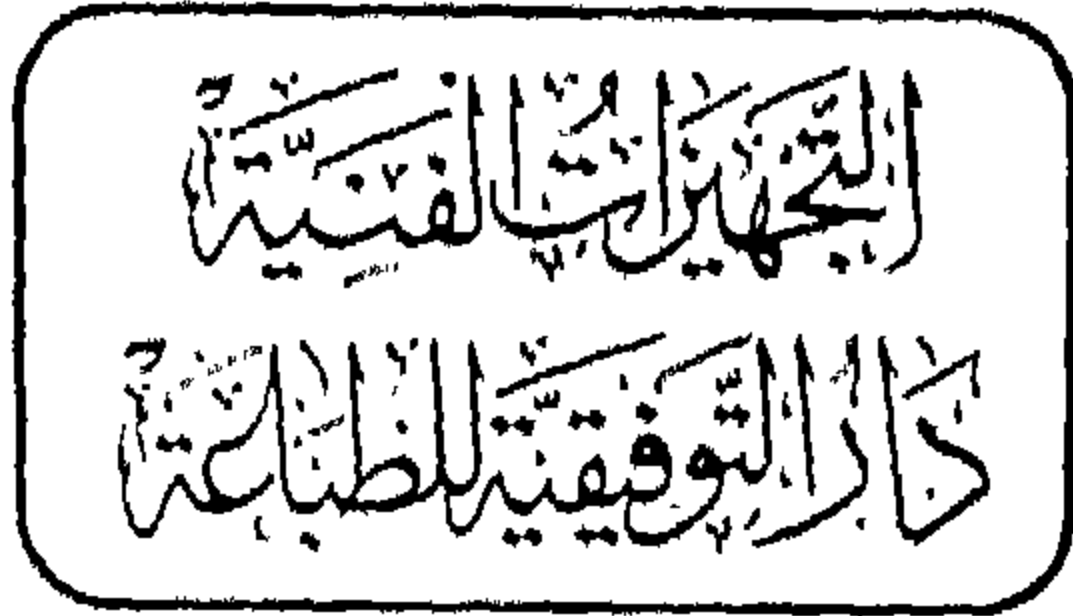 التّجهيزاتُ الفنيّة
دار التّوفيقيّة للطباعة